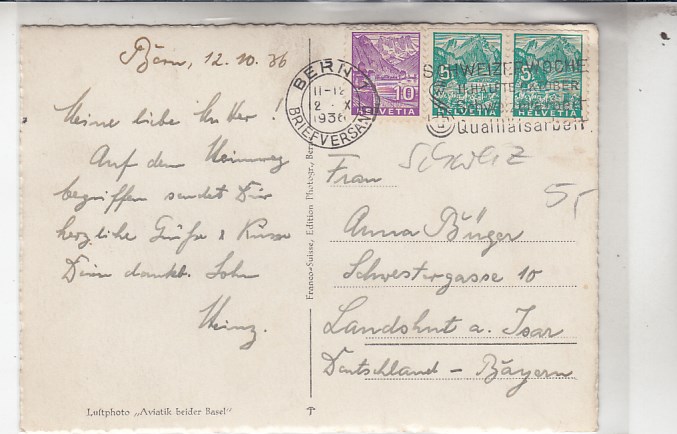 Bern, 12.10.36
Meine liebe Mutter!
Auf dem Heimweg
begriffen sendet Dir
herzliche Grüße & Küsse
Dein dankb. Sohn
Heinz.
Luftphoto „Aviatik beider Basel"
Franco-Suisse, Edition Photogr., Bern
BERN 1
11-12
12. X.
1936
BRIEFVERSAND
10
HELVETIA
5
HELVETIA
5
HELVETIA
SCHWEIZER WOCHE
Qualitätsarbeit
Schweiz
5,-
Frau
Anna Büger
Schwestergasse 10
Landshut a. Isar
Deutschland – Bayern